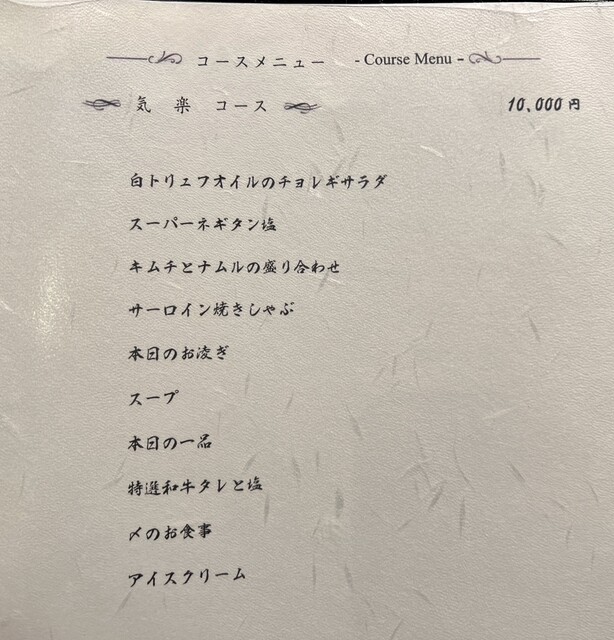 コースメニュー - Course Menu -
気 楽 コース 10,000円
白トリュフオイルのチョレギサラダ
スーパーネギタン塩
キムチとナムルの盛り合わせ
サーロイン焼きしゃぶ
本日のお凌ぎ
スープ
本日の一品
特選和牛タレと塩
〆のお食事
アイスクリーム